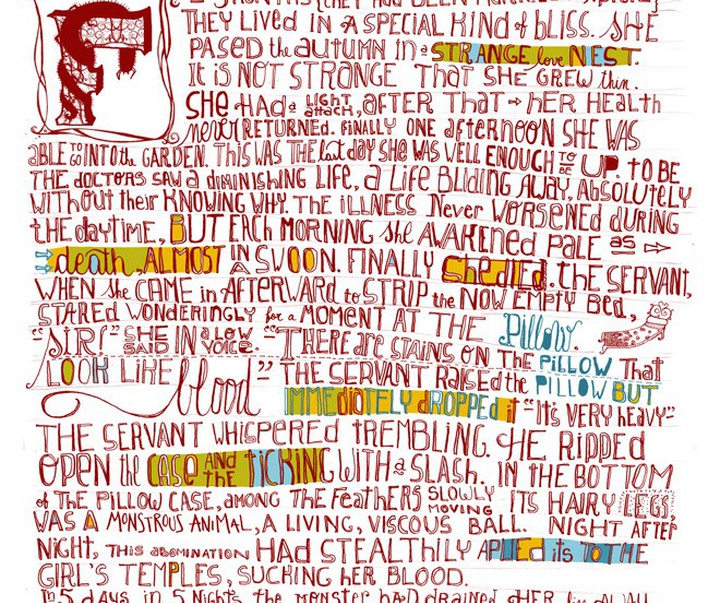 F
THEY LIVED IN A SPECIAL KIND of BLISS. SHE
PASED the AUTUMN IN a STRANGE love NEST.
It is NOT STRANGE THAT SHE GREW thin.
SHE HAD a LIGHT attach, AFTER THAT HER HEALTH
never RETURNED. FINALLY ONE afternoon SHE WAS
ABLE TO GO INTO the GARDEN. THIS WAS THE last day SHE WAS WELL ENOUGH TO BE UP. TO BE
THE DOCTORS SAW a DIMINISHING LIFE, a LIFE BLIDING AWAY, ABSOLUTELY
WITHOUT their KNOWING WHY. THE ILLNESS Never WORSENED DURING
tHE daytime, BUT EACH MORNING she AWAKENED PALE as
death, ALMOST IN A SWOON. FINALLY SHE DIED. tHE SERVANT,
WHEN she CAME in AFTERWARD to STRIP the NOW EMPTY Bed,
STARED WONDERINGLY for a MOMENT AT THE Pillow.
"SIR!" SHE SAID IN a LOW VOICE. "THERE are STAINS ON THE PILLOW THAT
LOOK LIKE blood" THE SERVANT RAISED the PILLOW BUT
IMMEDIATELY DROPPED it "It's VERY heavy"
THE SERVANT WHISPERED tREMBLING. HE RIPPED
OPEN the CASE AND THE TICKING WITH a SLASH. IN THE BOTTOM
of THE PILLOW CASE, AMONG THE FEATHERS SLOWLY MOVING ITS HAIRY LEGS
WAS A MONSTROUS ANIMAL, A LIVING, VISCOUS BALL. NIGHT AFTER
NIGHT, THIS ABOMINATION HAD STEALTHILY APLIED its TO THE
GIRL'S TEMPLES, SUCKING hER BLOOD.
In 5 DAYS, in 5 Nights, the MONSTER HAD DRAINED